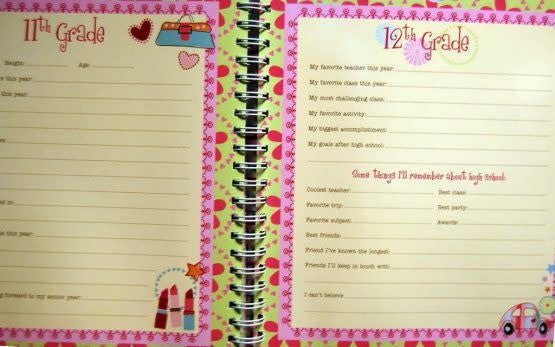 11th Grade
Height: Age
this year:
this year:
this year:
forward to my senior year:
12th Grade
My favorite teacher this year:
My favorite class this year:
My most challenging class:
My favorite activity:
My biggest accomplishment:
My goals after high school:
Some things I'll remember about high school:
Coolest teacher: Best class:
Favorite trip: Best party:
Favorite subject: Awards:
Best friends:
Friend I've known the longest:
Friends I'll keep in touch with:
I can't believe